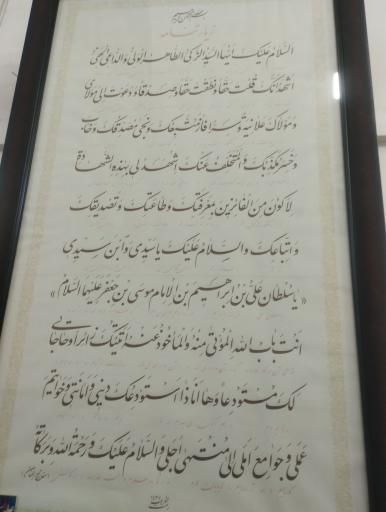 بسم الله الرحمن الرحیم
زیارتنامه
السَّلامُ عَلَیْکَ اَیُّهَا السَّیِّدُ الزَّکِیُّ الطّاهِرُ الْوَلِیُّ وَالدّاعِی الْحَفِیُّ
اَشْهَدُ اَنَّکَ قُلْتَ حَقّاً وَ نَطَقْتَ حَقّاً وَ صِدْقاً وَ دَعَوْتَ اِلی مَوْلایَ
وَ مَوْلاکَ عَلانِیَةً وَ سِرّاً فازَ مُتَّبِعُکَ وَ نَجی مُصَدِّقُکَ وَ خابَ
وَ خَسِرَ مُکَذِّبُکَ وَ الْمُتَخَلِّفُ عَنْکَ اِشْهَدْ لی بِهذِهِ الشَّهادَةِ
لِاَکُونَ مِنَ الْفائِزینَ بِمَعْرِفَتِکَ وَ طاعَتِکَ وَ تَصْدیقِکَ
وَ اتِّباعِکَ وَالسَّلامُ عَلَیْکَ یا سَیِّدی وَ ابْنَ سَیِّدی
« یا سُلْطان عَلِیِّ بْنِ اِبْراهیمِ بْنِ الْاِمامِ مُوسَی بْنِ جَعْفَرٍ عَلَیْهِمَا السَّلامُ »
اَنْتَ بابُ اللهِ الْمُؤْتی مِنْهُ وَ الْمَأْخُوذُ عَنْهُ اَتَیْتُکَ زائِراً وَ حاجاتی
لَکَ مُسْتَوْدِعاً وَ ها اَنَا ذا اَسْتَوْدِعُکَ دینی وَ اَمانَتی وَ خَواتیمَ
عَمَلی وَ جَوامِعَ اَمَلی اِلی مُنْتَهی اَجَلی وَ السَّلامُ عَلَیْکَ وَ رَحْمَةُ اللهِ وَ بَرَکاتُهُ